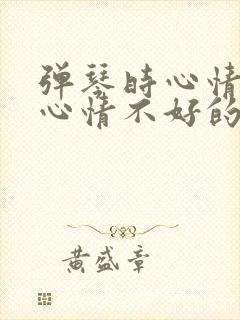 弹琴时心情
心情不好的
黄盛章